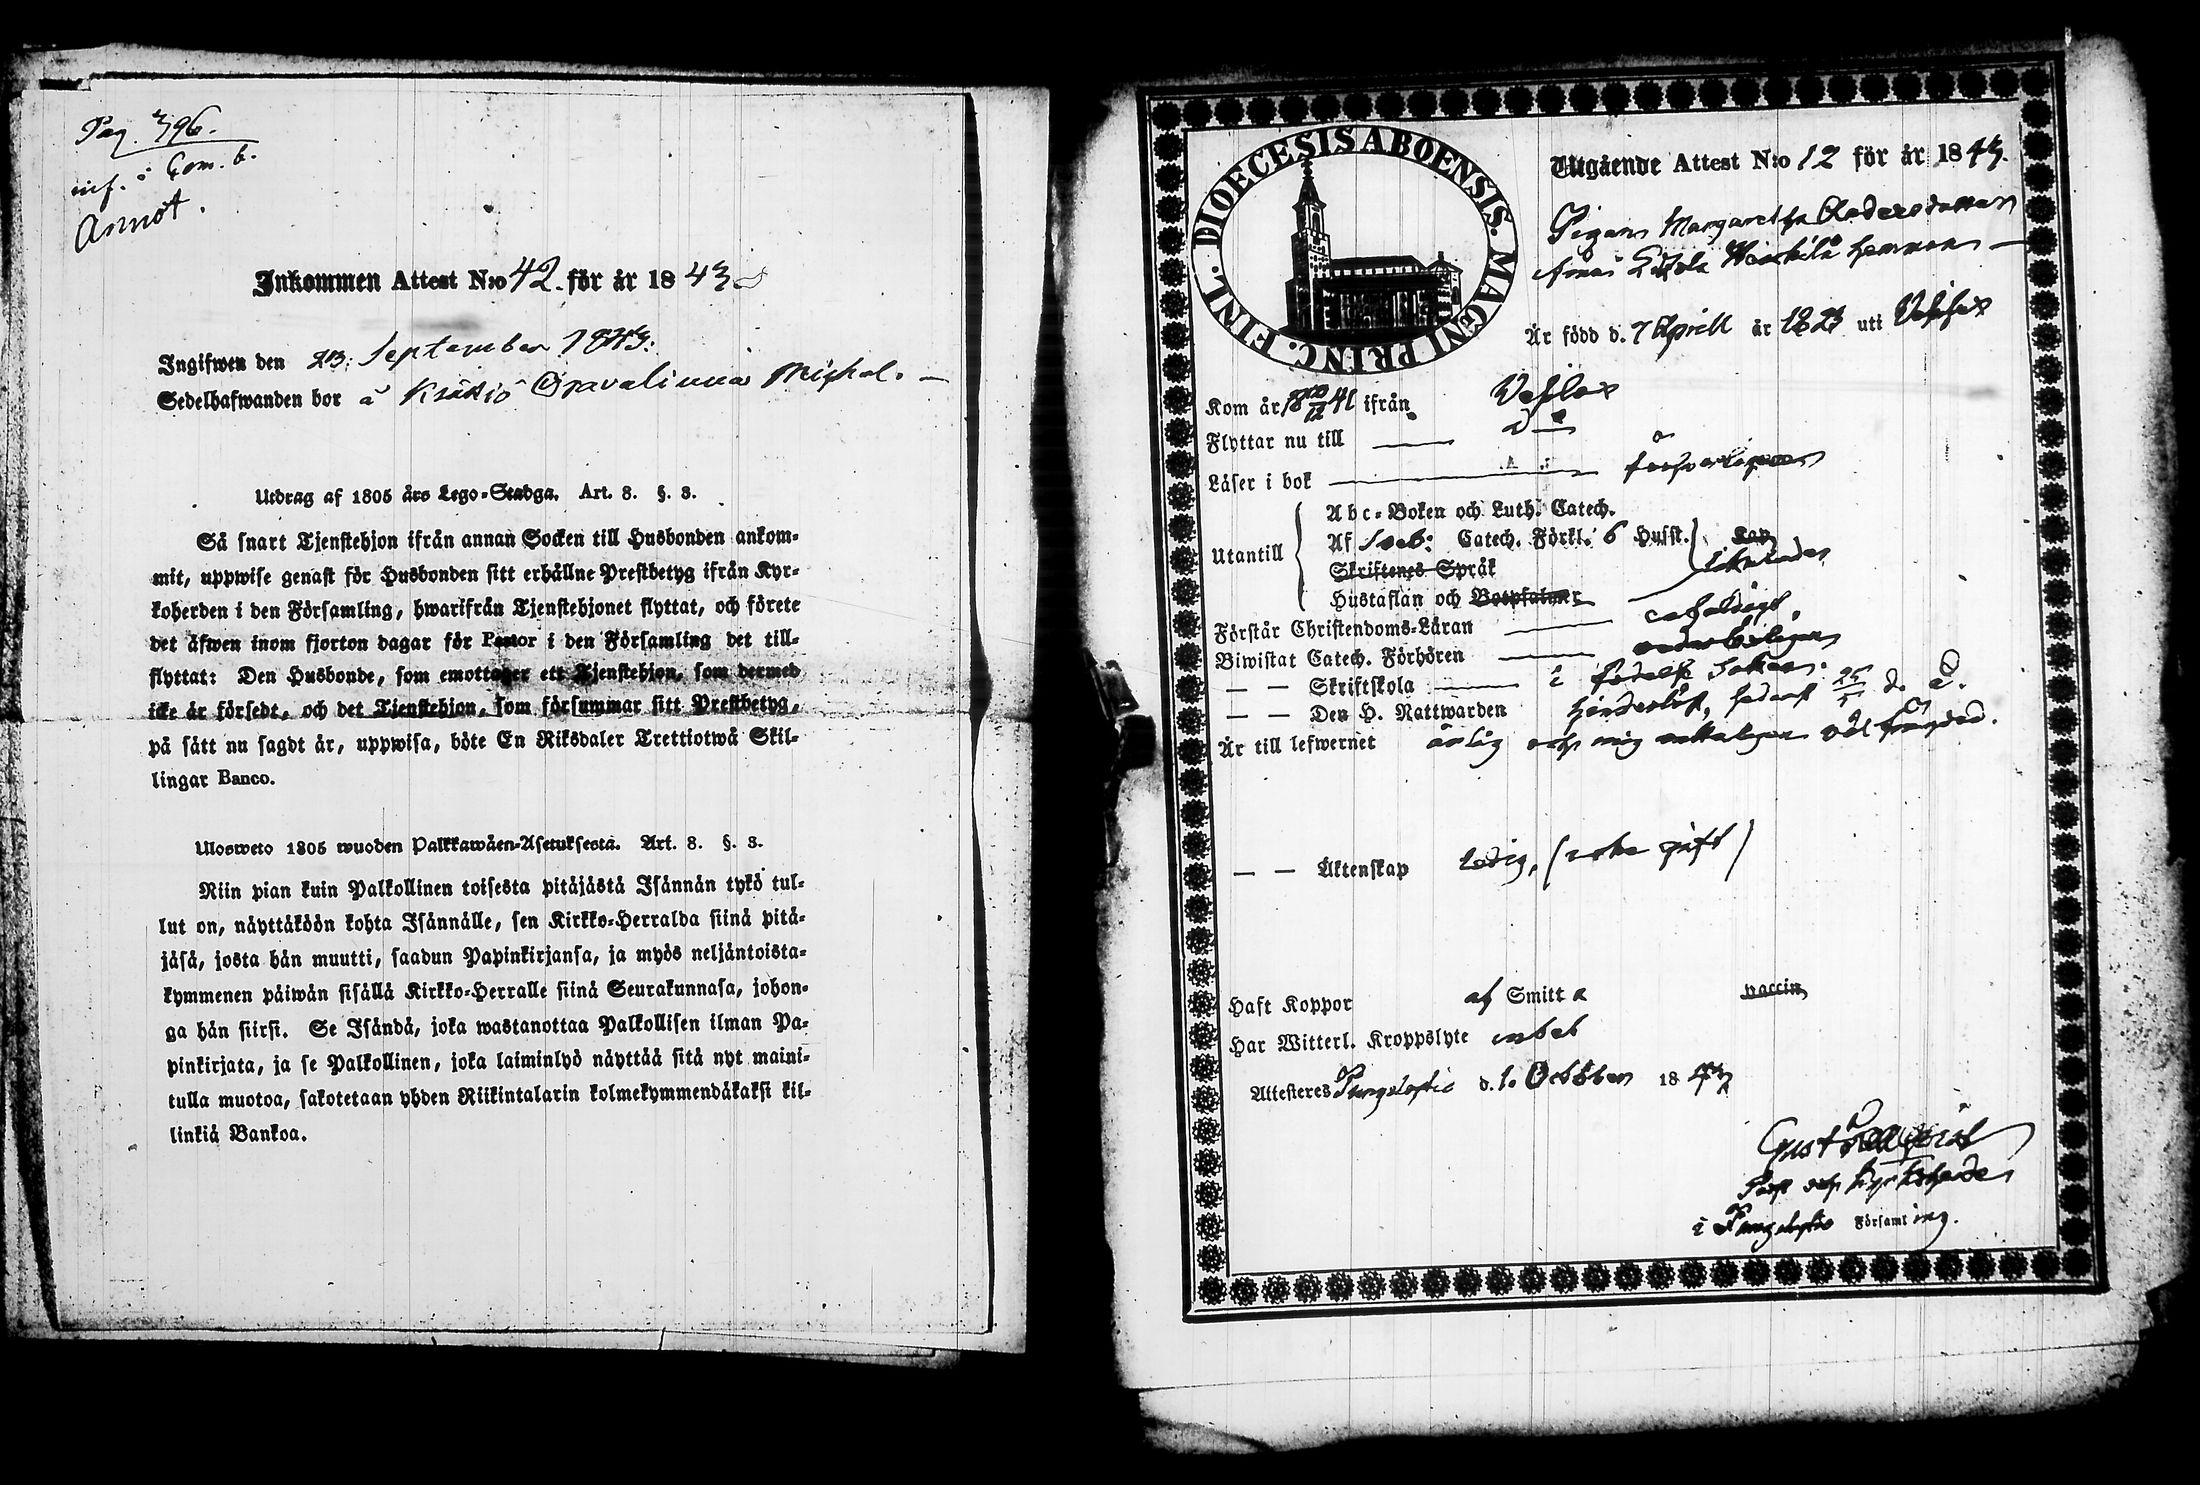 Pag. 396.
inf. i Com. b.
Inkommen Attest N:o 42. för år 1843
Ingifwen den 23: September 1843:
Sedelhafwanden bor å
Utdrag af 1805 års Lego-Stadga. Art. 8. §. 3.
Så snart Tjenstehjon ifrån annan Socken till Husbonden ankom-
mit, uppwise genast för Husbonden sitt erhållne Prestbetyg ifrån Kyr-
koherden i den Församling, hwarifrån Tjenstehjonet flyttat, och förete
det äfwen inom fjorton dagar för Pastor i den Församling det till-
flyttat: Den Husbonde, som emottager ett Tjenstehjon, som dermed
icke är försedt, och det Tjenstehjon, som försummar sitt Prestbetyg,
på sätt nu sagdt är, uppwisa, böte En Riksdaler Trettiotwå Skil-
lingar Banco.
Ulosweto 1805 wuoden Palkkawäen-Asetuksesta. Art. 8. §. 3.
Niin pian kuin Palkollinen toisesta pitäjästä Isännän tykö tul-
lut on, näyttäköön kohta Isännälle, sen Kirkko-Herralda siinä pitä-
jäsä, josta hän muutti, saadun Papinkirjansa, ja myös neljäntoista-
kymmenen päiwän sisällä Kirkko-Herralle siinä Seurakunnasa, johon-
ga hän siirsi. Se Isändä, joka wastanottaa Palkollisen ilman Pa-
pinkirjata, ja se Palkollinen, joka laiminlyö näyttää sitä nyt maini-
tulla muotoa, sakotetaan yhden Riikintalarin kolmekymmendäkaksi kil-
linkiä Bankoa.
DIOECESIS ABOENSIS. MAGNI PRINC. FINL.
Utgående Attest N:o 12 för år 1843.
Pigan Margaretha Andersdotter
från hemman
Är född d. 7 April år 1823 uti
Kom år 18 41 ifrån
Flyttar nu till
Läser i bok försvarligen
Abc-Boken och Luth. Catech.
Utantill Af Catech. Förkl. 6 Husst.
Skriftenes Språk
Hustaflan och Botpsalmer
Förstår Christendoms-Läran enfaldigt.
Biwistat Catech. Förhören
— — Skriftskola i
— — Den H. Nattwarden hinderlöst, senast
Är till lefwernet ärlig och mig veterligen väl frejdad.
— — Äktenskap Ledig, (icke gift)
Haft Koppor af Smitta vaccin
Har Witterl. Kroppslyte intet
Attesteres Pungalaitio d. 1. October 1843
Gust
Past och Kyrkoherde
i Pungalaitio Församling.